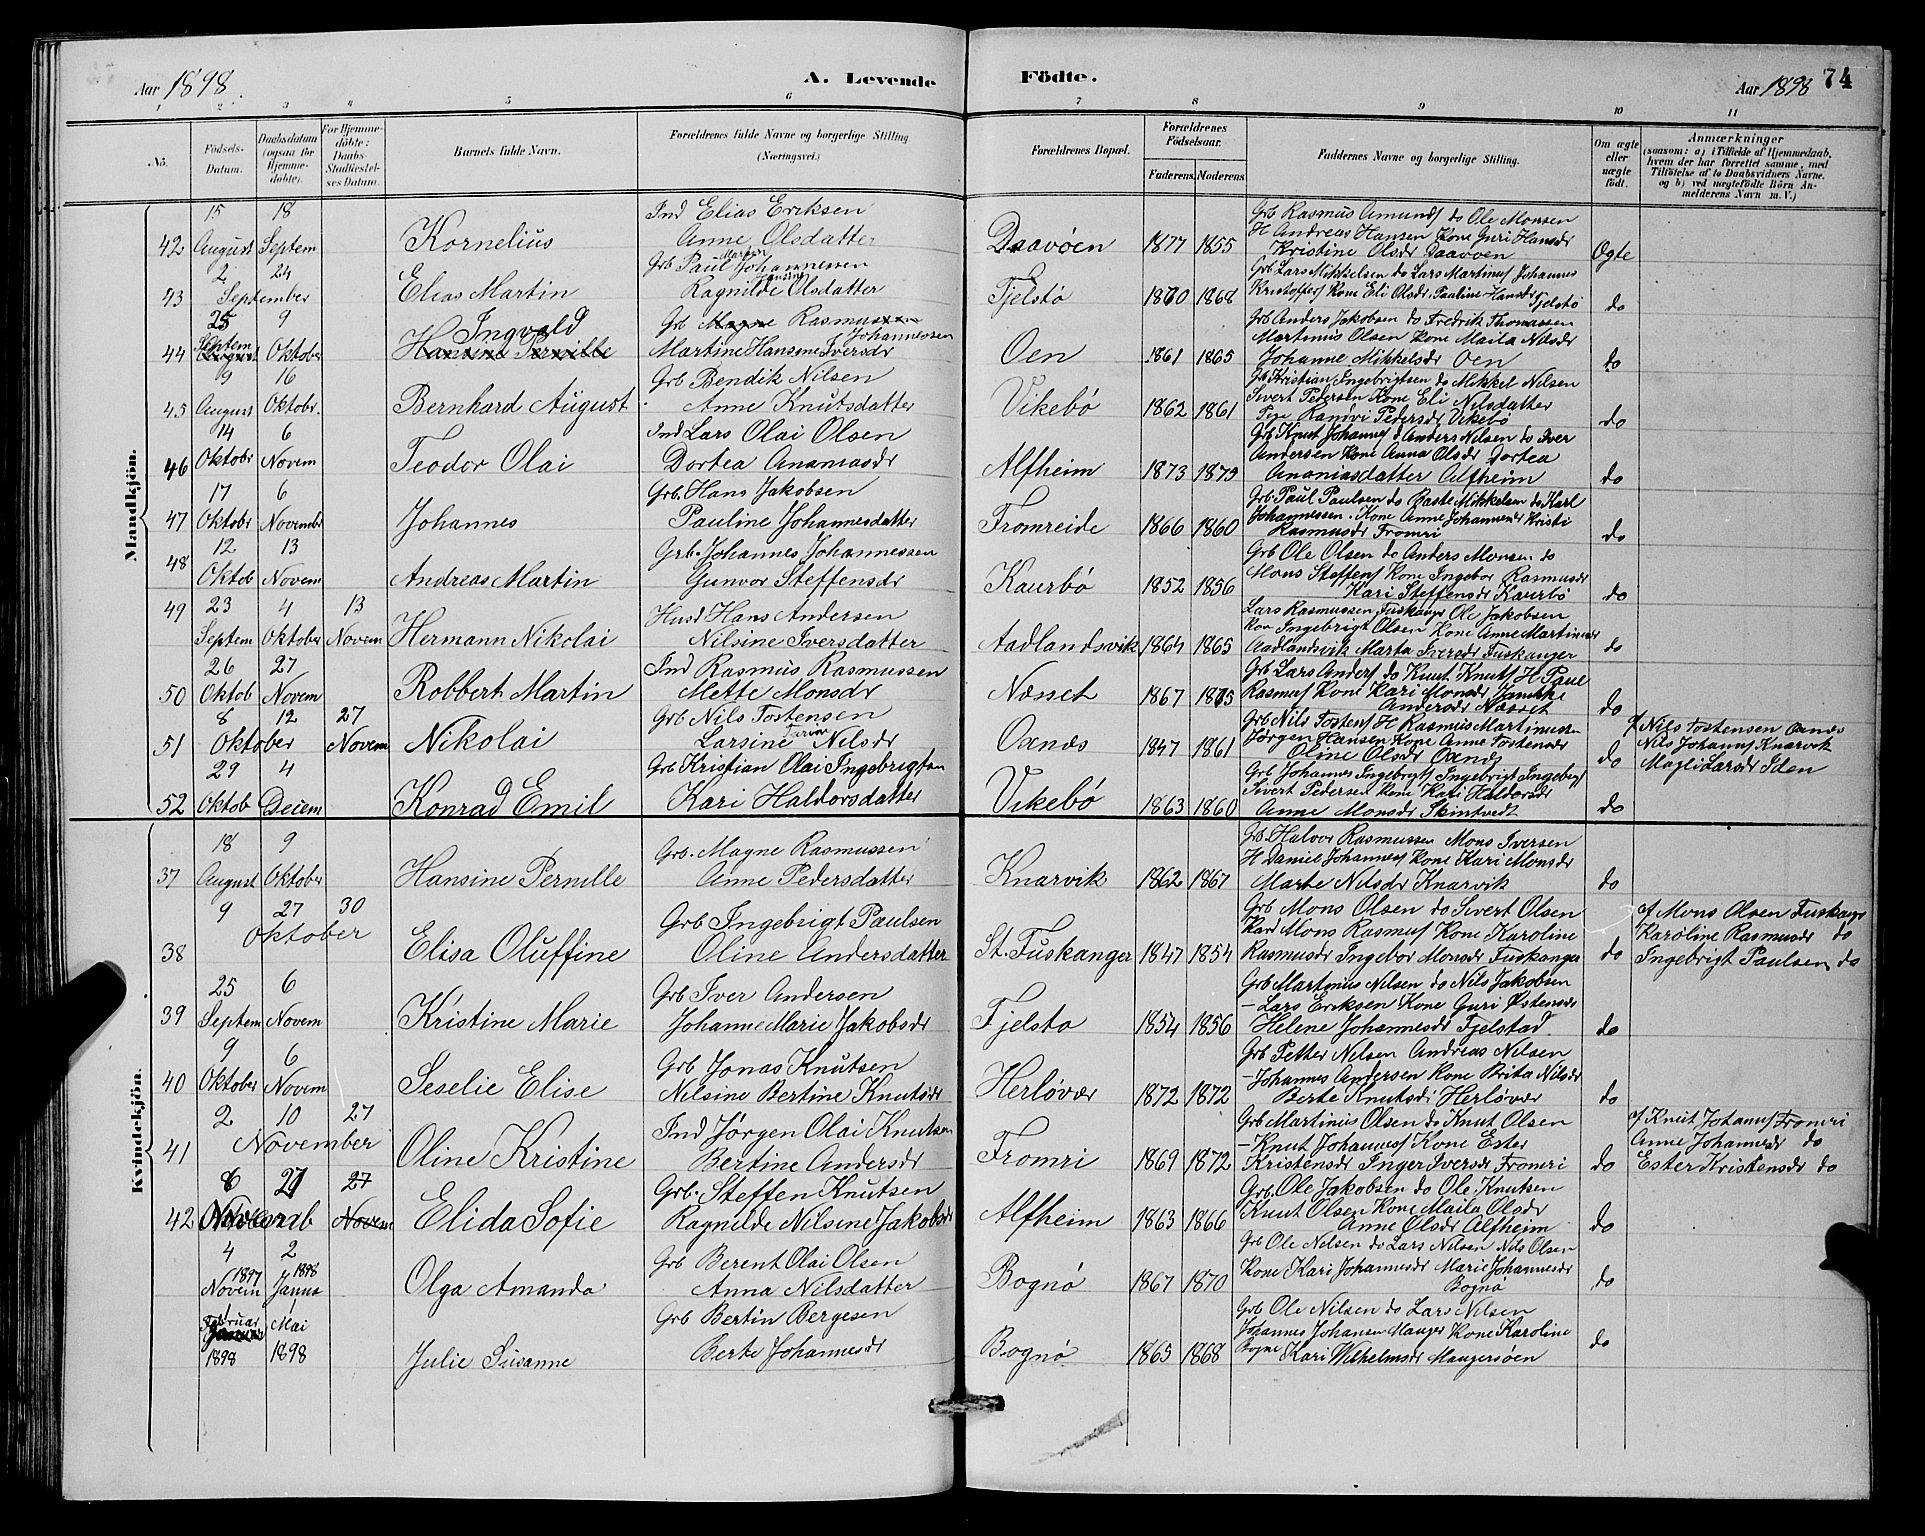 Aar 1898.
A. Levende
Födte.
Aar 1898
74
1 2 3 4 5 6 7 8 9 10 11
No.
Födsels-Datum.
Daabsdatum (ogsaa for Hjemme-döbte).
For Hjemme-döbte: Daabs-Stadfæstel-ses Datum.
Barnets fulde Navn.
Forældrenes fulde Navne og borgerlige Stilling (Næringsvei.)
Forældrenes Bopæl.
Forældrenes Födselsaar.
Faderens. Moderens
Faddernes Navne og borgerlige Stilling.
Om ægte eller uægte födt.
Anmærkninger
(saasom: a) i Tilfælde af Hjemmedaab, hvem der har forrettet samme, med Tilföielse af to Daabsvidners Navne. og b) ved uægtefödte Börn An-melderens Navn m. V.)
Mandkjön.
42 15 August 18 Septem Kornelius Ind Elias Eriksen
Anne Olsdatter Daavöen 1877 1855 Grb Rasmus Amunds do Ole Monsen
H Andreas Hansen Kone Guri Hansdr
Kristine Olsdr Daavöen Ægte
43 2 24 September Elias Martin Grb Paul Martin Johannessen
Ragnilde Hansine Olsdatter Fjelstö 1870 1868 Grb Lars Mikkelsen do Lars Martinus Johannes
Kristoffers Kone Eli Olsdr. Pauline Hansdr Fjelstö do
44 25 Septem 9 Oktober Ingvald Hansine Pernille Grb Magne Rasmussen Johannessen
Martine Hansine Iversdr Oen 1861 1865 Grb Anders Jakobsen do Fredrik Thomassen
Martinus Olsen Kone Maila Nilsdr
Johanne Mikkelsdr Oen do
45 9 August 16 Oktobr. Bernhard August Grb Bendik Nilsen
Anne Knutsdatter Vikebö 1862 1861 Grb Kristian Ingebrigtsen do Mikkel Nilsen
Sivert Pedersen Kone Eli Nilsdatter
Pige Ranovi Pedersdr Vikebö do
46 14 Oktobr 6 Novem Teodor Olai Ind Lars Olai Olsen
Dortea Ananiasdr Alfheim 1873 1879 Grb Knut Johannes d Anders Nilsen do Iver
Andersen Kone Anna Olsdr Dortea
Ananiasdatter Alfheim do
47 17 Oktobr 6 Novembr Johannes Grb. Hans Jakobsen
Pauline Johannesdatter Fromreide 1866 1860 Grb Paul Paulsen do Raste Mikkelsen do Karl
Johannessen. Kone Anne Johannesdr Kristi
Rasmusdr Fromri do
48 12 Oktob 13 Novem Andreas Martin Grb. Johannes Johannessen
Gunvor Steffensdr Kaurbö 1852 1856 Grb Ole Olsen do Anders Monsen do
Mons Steffens Kone Ingebor Rasmusdr
Kari Steffensdr Kaurbö do
49 23 Septem 4 Oktober 13 Novem Hermann Nikolai Husd Hans Andersen
Nilsine Iversdatter Aadlandsvik 1864 1865 Lars Rasmussen Fuskanger Ole Jakobsen
Kar Ingebrigt Olsen Kone Anne Martinusdr
Aadlandsvik Marta Iversdr Fuskanger do
50 26 Oktob 27 Novem Robbert Martin Ind Rasmus Rasmussen
Mette Monsdr Næsset 1867 1875 Grb Lars Anders do Knut Knuts H Paul
Rasmus Kone Kari Monsdr Jannke
Andersdr Næsset do
51 8 12 Oktober 27 Novem Nikolai Grb Nils Tostensen
Larsine Tarine Nilsdr Oxnæs 1847 1861 Grb Nils Tostens H Rasmus Martinusen
Jørgen Hansen Kone Anne Tostensdr
Oline Olsdr Oxnæs do af Nils Tostensen Oxnæs
Nils Johannes Knarvik
Magli Larsdr Iden
52 29 Oktob 4 Deiem Konrad Emil Grb Kristian Olai Ingebrigtsen
Kari Haldorsdatter Vikebö 1863 1860 Grb Johannes Ingebrigts Ingebrigt Ingebrigts
Sivert Pedersen Kone Kari Haldorsdr
Anne Monsdr Skintvedt do
Kvindekjön.
37 18 August 9 Oktober Hansine Pernille Grb. Magne Rasmussen
Anne Pedersdatter Knarvik 1862 1867 Grb. Halvor Rasmussen Mons Iversen
H Daniel Johannes Kone Kari Monsdr
Marte Nilsdr Knarvik do
38 9 27 30 Oktober Elisa Oluffine Grb Ingebrigt Paulsen
Oline Andersdatter St. Fuskanger 1847 1854 Grb Mons Olsen do Sivert Olsen
Kard Mons Rasmus Kone Karoline
Rasmusdr Ingebor Monsdr Fuskanger do af Mons Olsen Fuskanger
Karoline Rasmusdr do
Ingebrigt Paulsen do
39 25 Septem 6 Novem Kristine Marie Grb Iver Andersen
Johanne Marie Jakobsdr Fjelsto 1854 1856 Grb Martinus Nilsen do Nils Jakobsen
- Lars Eriksen Kone Guri Østensdr
Helene Johannesdr Fjelstad do
40 9 Oktober 6 Novem Seselie Elise Grb Jonas Knutsen
Nilsine Bertine Knutsdr Herløvær 1872 1872 Grb Petter Nilsen Andreas Nilsen
- Johannes Andersen Kone Brita Nilsdr
Berte Knutsdr Herløvær do
41 2 10 November 27 Oline Kristine Ind Jørgen Olai Knutsen
Bertine Andersdr Fromri 1869 1872 Grb Martinus Olsen do Knut Olsen
- Knut Johannes Kone Ester
Kristensdr Inger Iversdr Fromri do af Knut Johannes Fromri
Anne Johannesdr do
Ester Kristensdr do
42 6 27 Novemb 27 Novem Elida Sofie Grb. Steffen Knutsen
Ragnilde Nilsine Jakobsdr Alfheim 1863 1866 Grb. Ole Jakobsen do Ole Knutsen
Knut Olsen Kone Maila Olsdr
Anne Olsdr Alfheim do
4 Novem 1897 2 Janua 1898 Olga Amanda Grb Berent Olai Olsen
Anna Nilsdatter Bognø 1867 1870 Grb Ole Nelsen do Lars Nilsen Nils Olsen
Kone Kari Johannesdr Marie Johannesdr
Bognø do
1 Februar Januar 1898 1 Mai 1898 Julie Susanne Grb Bertin Bergesen
Berte Johannesdr Bognø 1865 1868 Grb Ole Nilsen do Lars Nilsen
Johannes Johansen Manger Kone Karoline
Bogne Kari Wilhelmsdr Mangersöen do